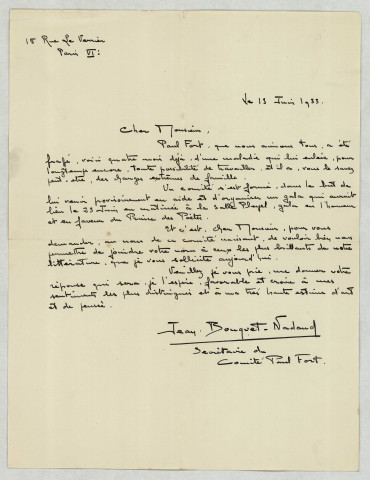 18 Rue Le Verrier
Paris VIe
Le 13 Juin 1933.
Cher Monsieur,
Paul Fort, que nous aimons tous, a été
frappé, voici quatre mois déjà, d'une maladie qui lui enlève, pour
longtemps encore, toute possibilité de travailler, et il a, vous le savez
peut-être, des charges extrêmes de famille.
Un comité s'est formé, dans le but de
lui venir provisoirement en aide et d'organiser un gala qui aurait
lieu le 29 Juin en matinée à la Salle Pleyel, gala en l'honneur
et en faveur du Prince des Poètes.
Et c'est, cher Monsieur, pour vous
demander, au nom de ce comité naissant, de vouloir bien nous
permettre de joindre votre nom à ceux les plus brillants de notre
littérature, que je vous sollicite aujourd'hui.
Veuillez, je vous prie, me donner votre
réponse qui sera, je l'espère, favorable et croire à mes
sentiments les plus distingués et à ma très haute estime d'art
et de pensée.
Jean Bouquet-Nadaud
Secrétaire du
Comité Paul Fort.